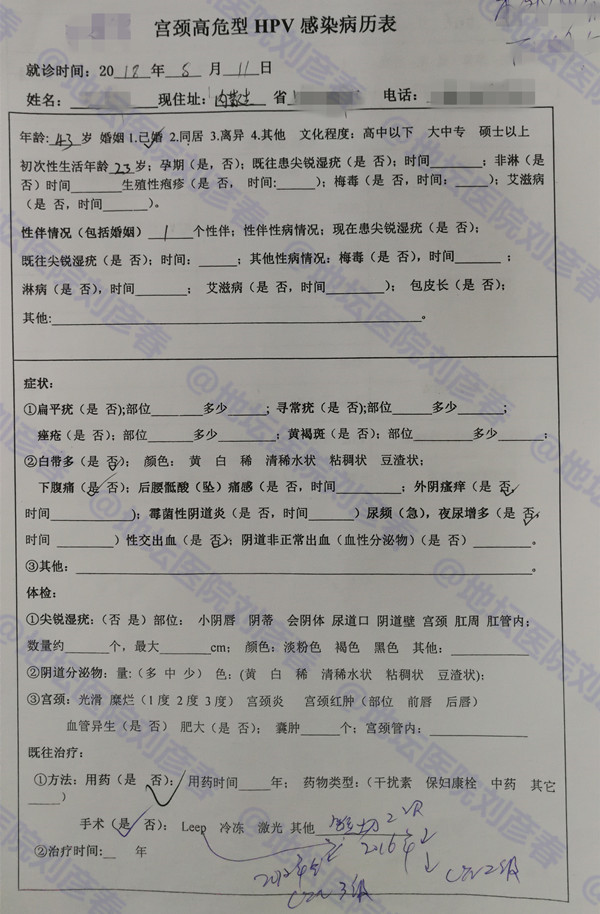 宫颈高危型 HPV 感染病历表
就诊时间：2012年8月11日
姓名：现住址：内蒙古 省 电话：
年龄：43岁 婚姻 1.已婚 2.同居 3.离异 4.其他 文化程度：高中以下 大中专 硕士以上
初次性生活年龄23岁；孕期（是，否）；既往患尖锐湿疣（是 否）；时间______；非淋（是
否）时间______生殖性疱疹（是 否， 时间：_____）；梅毒（是 否，时间：____）；艾滋病
（是 否，时间_____）。
性伴情况（包括婚姻）1个性伴；性伴性病情况；现在患尖锐湿疣（是 否）；
既往尖锐湿疣（是 否）；时间：_____；其他性病情况：梅毒（是 否），时间______；
淋病（是 否），时间______； 艾滋病（是 否，时间______）； 包皮长（是 否）；
其他:____________________。
症状：
①扁平疣（是 否）;部位______多少____；寻常疣（是 否）;部位____多少_____；
痤疮（是 否）；部位______多少______；黄褐斑（是 否）；部位______多少______；
②白带多（是 否）； 颜色： 黄 白 稀 清稀水状 粘稠状 豆渣状；
下腹痛（是 否）；后腰骶酸（坠）痛感（是 否，时间______；外阴瘙痒（是 否，
时间________）；霉菌性阴道炎（是 否，时间_____）尿频（急），夜尿增多（是 否，
时间 _______）性交出血（是 否）；阴道非正常出血（血性分泌物）（是 否）_______。
③其他：____________________。
体检：
①尖锐湿疣：（否 是）部位： 小阴唇 阴蒂 会阴体 尿道口 阴道壁 宫颈 肛周 肛管内；
数量约_____个，最大______cm； 颜色：淡粉色 褐色 黑色 其他：________
②阴道分泌物：量：（多 中 少） 色：（黄 白 稀 清稀水状 粘稠状 豆渣状）；
③宫颈：光滑 糜烂（1度 2度 3度） 宫颈炎 宫颈红肿（部位 前唇 后唇）
血管异生（是 否） 肥大（是 否）； 囊肿_____个；宫颈管内：__________
既往治疗：
①方法：用药（是 否）； 用药时间____年； 药物类型：（干扰素 保妇康栓 中药 其它
_____）
手术（是 否）； Leep 冷冻 激光 其他 2次
②治疗时间：__ 年
2016年
2012年
CIN3级
CIN2级
@地坛医院刘彦春